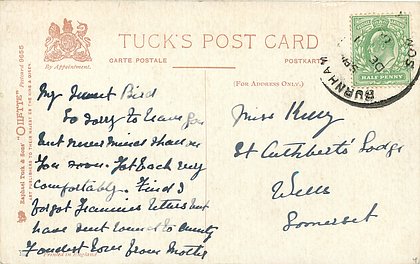 TUCK'S POST CARD
CARTE POSTALE
POSTKARTE
By Appointment.
(FOR ADDRESS ONLY.)
Raphael Tuck & Sons' "OILETTE" Postcard 9655
ART PUBLISHERS TO THEIR MAJESTIES THE KING & QUEEN.
Printed in England
HALF PENNY
BURNHAM
SOM
DE
My Bird
So sorry to leave you
but never mind shall see
you soon. Got back very
comfortably. Find I
forgot letters but
have sent round to Aunty
Fondest love from Mother
Miss Kelly
St Cuthbert's Lodge
Wells
Somerset